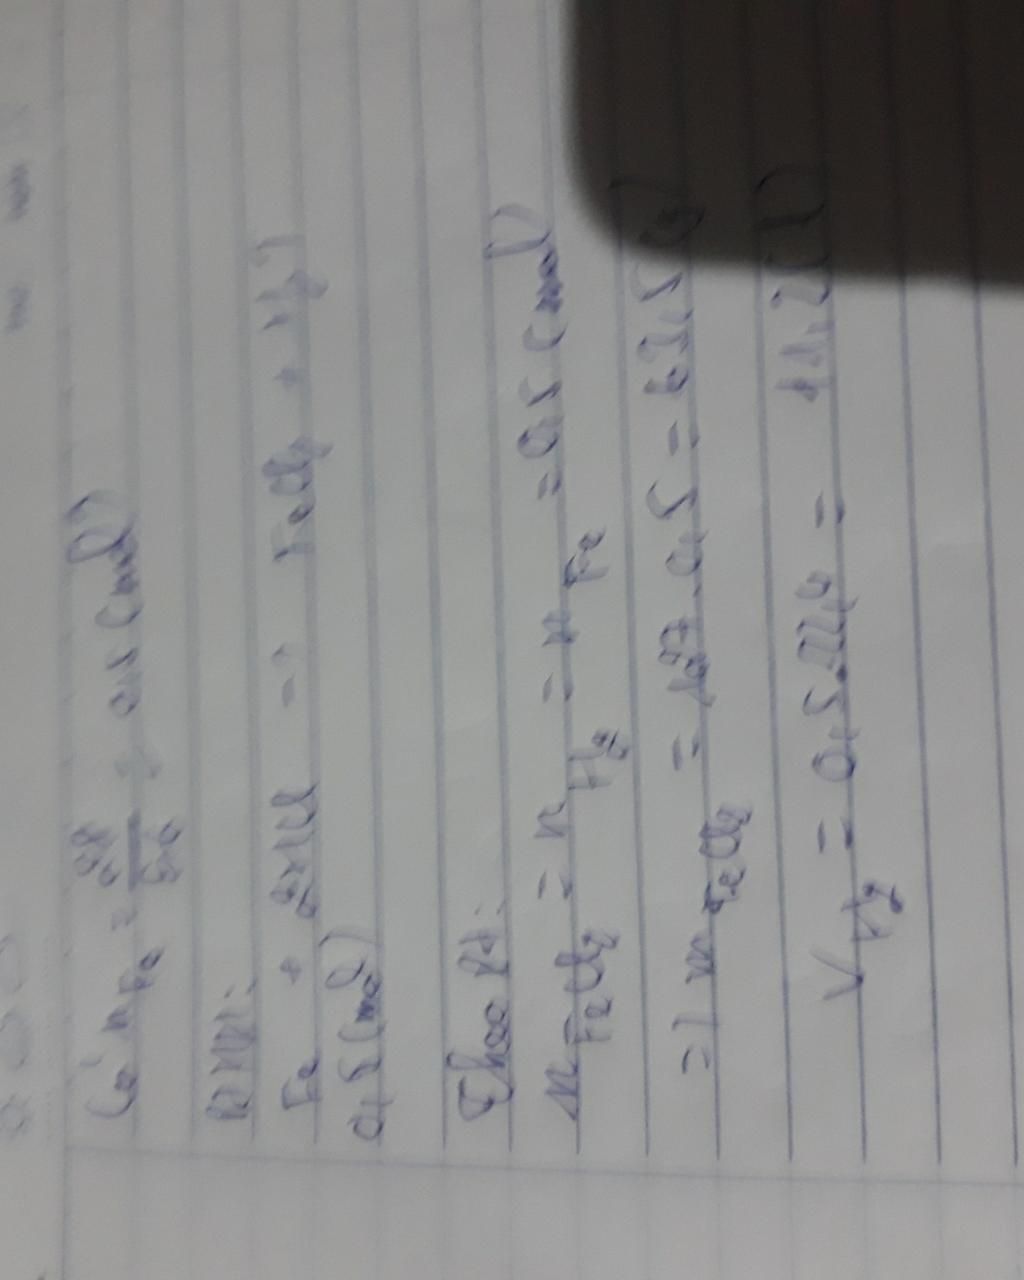 Có: nFe = 28/56 = 0,5 (mol)
PTHH:
Fe + 2HCl → FeCl2 + H2
0,5 (mol)
Theo pt:
nFeCl2 = nH2 = nFe = 0,5 (mol)
=) mFeCl2 = 127.0,5 = 63,5 (g)
VH2 = 0,5.22,4 = 11,2 (l)